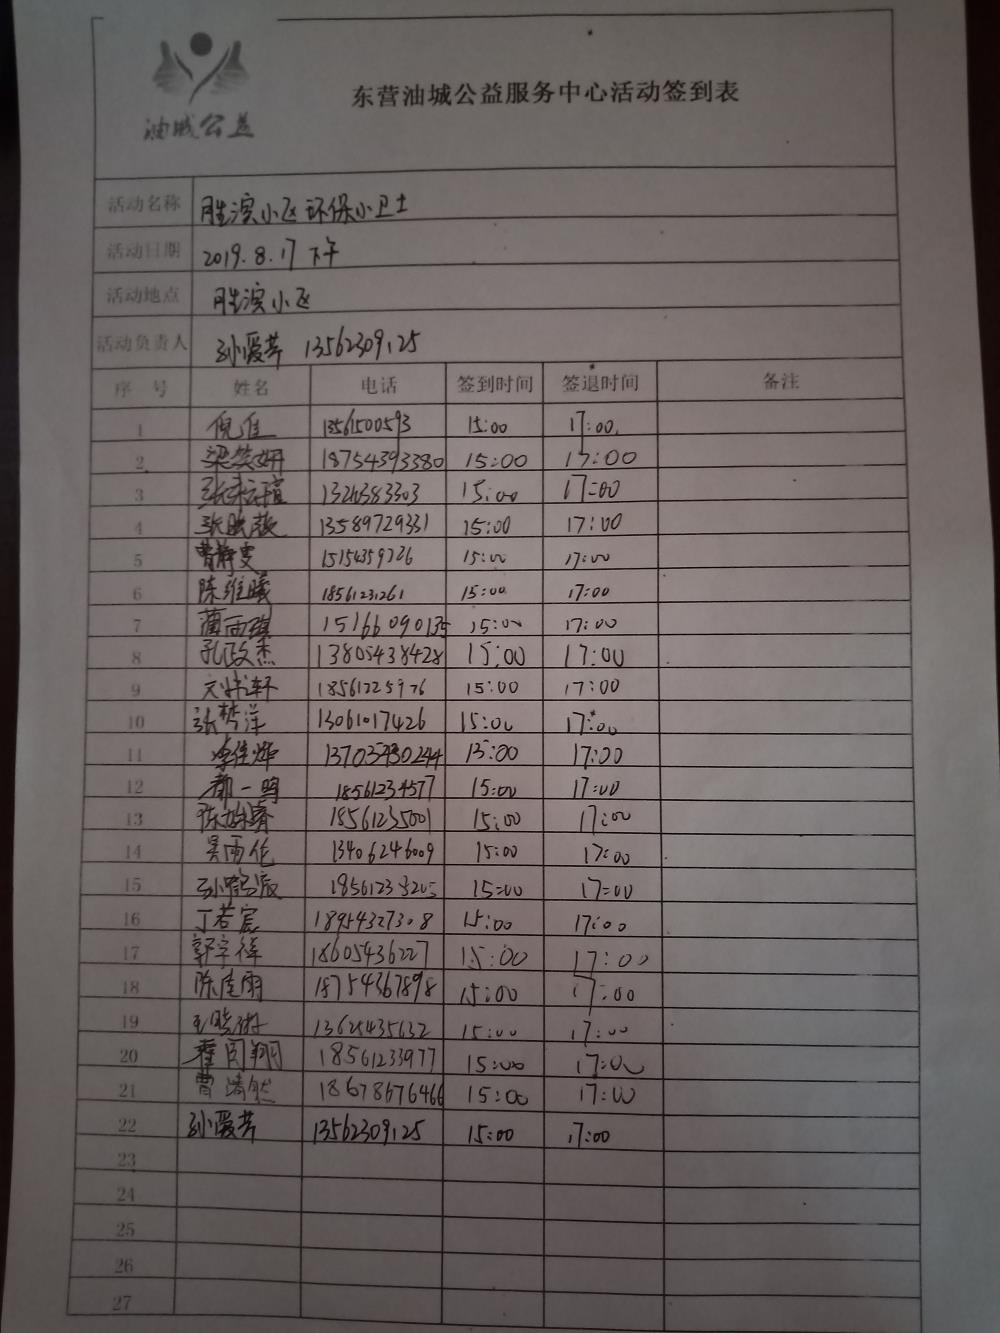 油城公益
东营油城公益服务中心活动签到表
活动名称 胜滨小区环保小卫士
活动日期 2019.8.17下午
活动地点 胜滨小区
活动负责人 孙爱芹 13562309125
序号 姓名 电话 签到时间 签退时间 备注
1 倪佳 1356500593 15:00 17:00
2 梁笑妍 18754393380 15:00 17:00
3 15:00 17:00
4 13589729331 15:00 17:00
5 曹静雯 15154359726 15:00 17:00
6 陈维曦 18561231261 15:00 17:00
7 蔺雨琪 15166090135 15:00 17:00
8 孔政杰 13805438428 15:00 17:00
9 18561225976 15:00 17:00
10 张梦洋 13061017426 15:00 17:00
11 李佳烨 15:00 17:00
12 都一鸣 18561234577 15:00 17:00
13 18561235001 15:00 17:00
14 吴雨伦 13406246009 15:00 17:00
15 18561233205 15:00 17:00
16 丁若宸 18954327308 15:00 17:00
17 郭宇祥 18605436227 15:00 17:00
18 陈佳雨 18754367898 15:00 17:00
19 王晓琳 13625435632 15:00 17:00
20 18561233977 15:00 17:00
21 曹浩然 18678676466 15:00 17:00
22 孙爱芹 13562309125 15:00 17:00
23
24
25
26
27